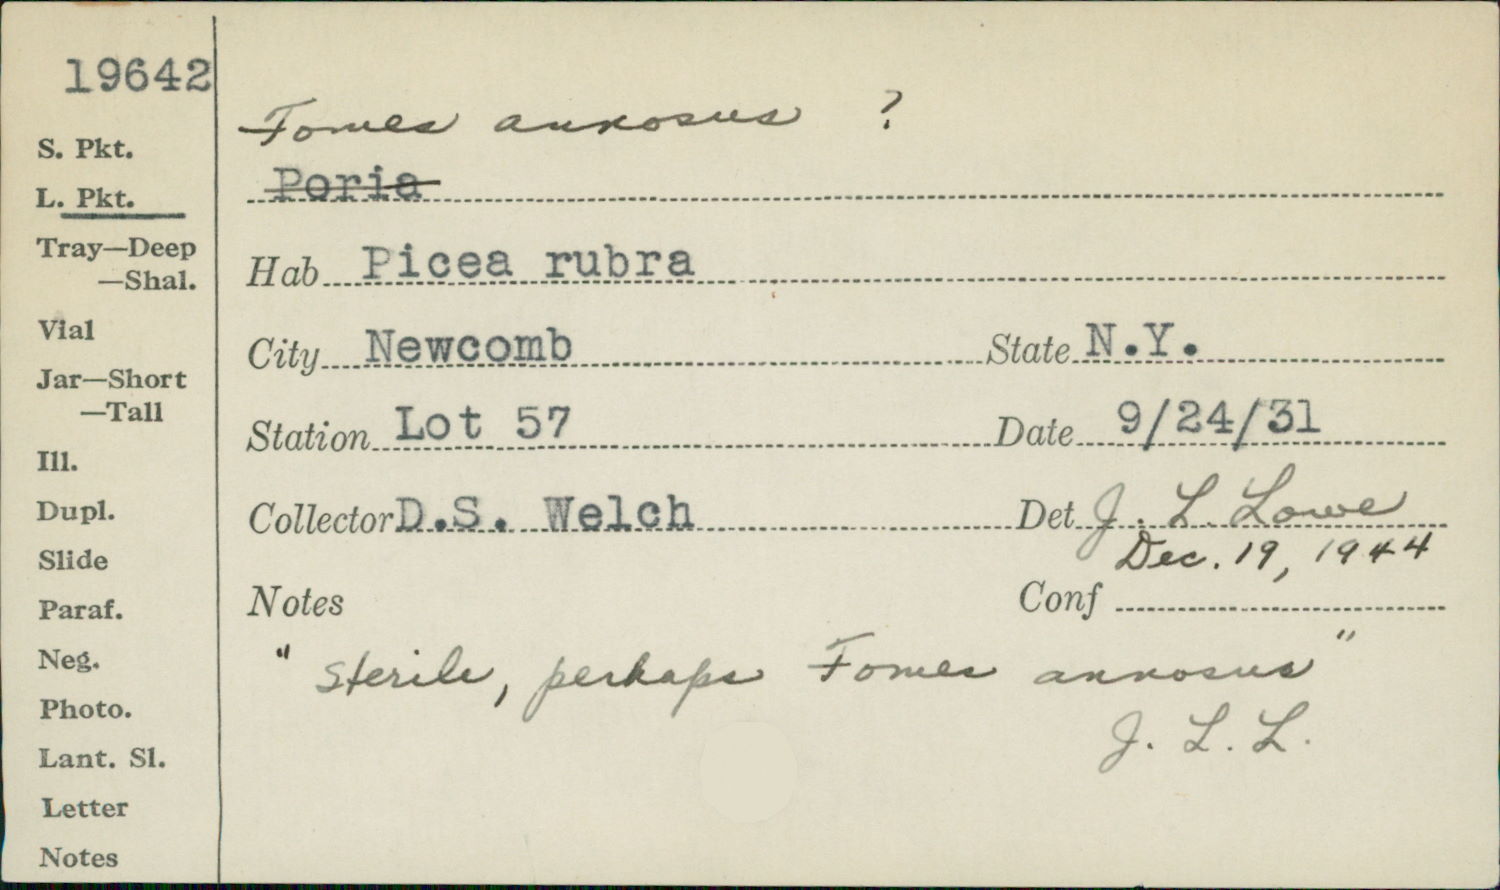 19642
S. Pkt.
L. Pkt.
Tray—Deep
—Shal.
Vial
Jar—Short
—Tall
Ill.
Dupl.
Slide
Paraf.
Neg.
Photo.
Lant. Sl.
Letter
Notes
Fomes annosus ?
Poria
Hab Picea rubra
City Newcomb State N.Y.
Station Lot 57 Date 9/24/31
Collector D.S. Welch Det J. L. Lowe
Dec. 19, 1944
Notes Conf
" Sterile, perhaps Fomes annosus "
J. L. L.